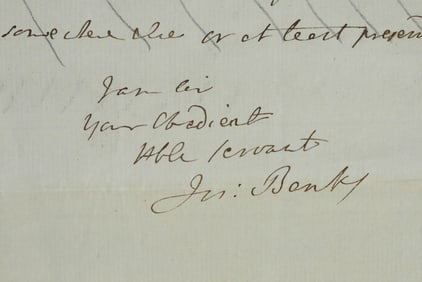 some else or at least presen
I am Sir
Your Obedient
Hble Servant
Jos: Banks